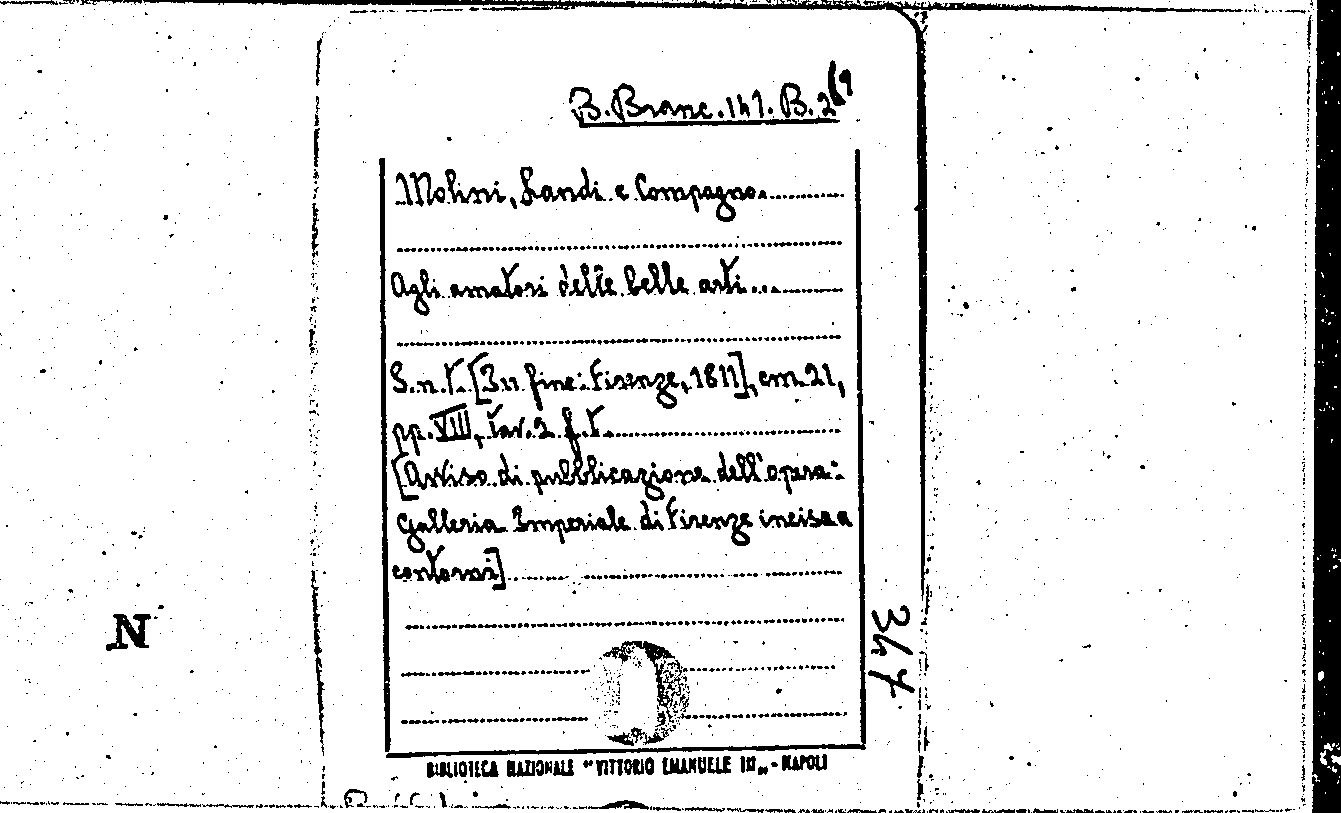 B. Branc. 141. B. 2⁶⁹
Molini, Landi e Compagno.
Agli amatori delle belle arti...
S.n.t. [In fine: Firenze, 1811], cm. 21,
pp. VIII, tav. 2 f.t.
[Avviso di pubblicazione dell'opera:
Galleria Imperiale di Firenze incisa a
contorni]
N
347
BIBLIOTECA NAZIONALE "VITTORIO EMANUELE III" - NAPOLI